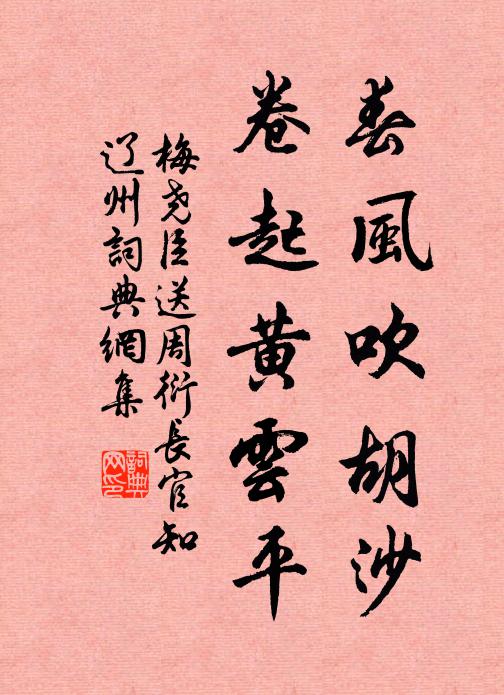 春風吹胡沙
卷起黄雲平
梅尧臣送周衍長官知
辽州詞典網集
詞典
网印